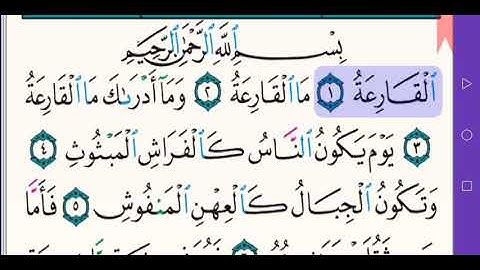 بِسْمِ ٱللَّهِ ٱلرَّحْمَٰنِ ٱلرَّحِيمِ
ٱلْقَارِعَةُ ١ مَا ٱلْقَارِعَةُ ٢ وَمَآ أَدْرَىٰكَ مَا ٱلْقَارِعَةُ
٣ يَوْمَ يَكُونُ ٱلنَّاسُ كَٱلْفَرَاشِ ٱلْمَبْثُوثِ ٤
وَتَكُونُ ٱلْجِبَالُ كَٱلْعِهْنِ ٱلْمَنفُوشِ ٥ فَأَمَّا